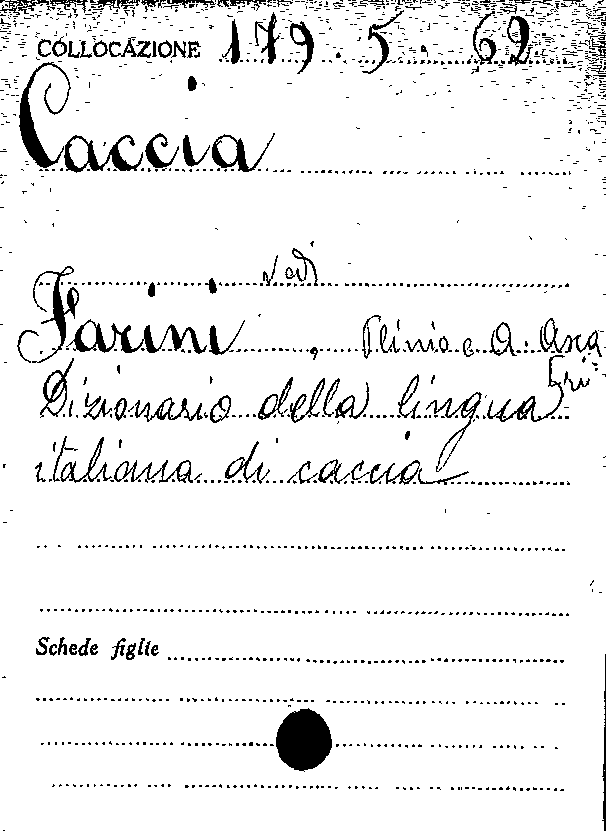 COLLOCAZIONE 179.5.62
Caccia
vedi
Farini, Plinio e A. Asca
gri=
Dizionario della lingua
italiana di caccia
Schede figlie